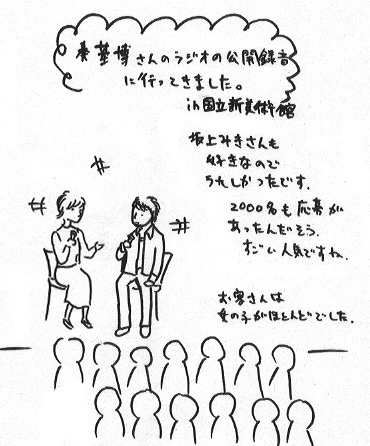 秦基博さんのラジオの公開録音
に行ってきました。
in国立新美術館
坂上みきさんも
好きなので
うれしかったです.
2000名も応募が
あったんだそう.
すごい人気ですね.
お客さんは
女の子がほとんどでした.